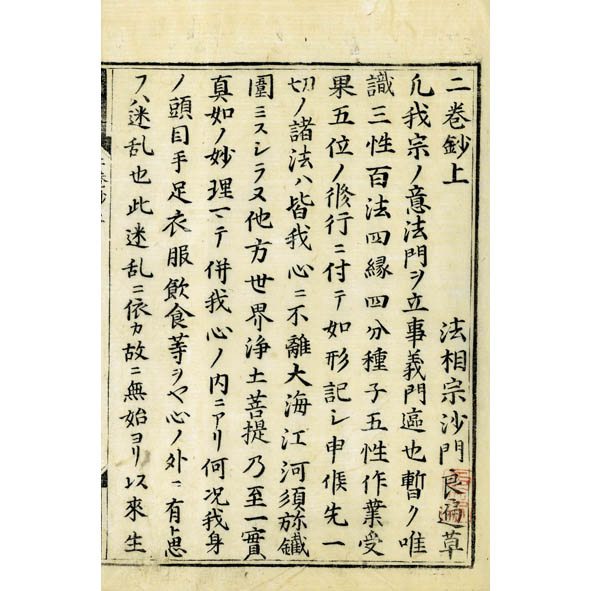 二巻鈔上
法相宗沙門良遍草
凡我宗ノ意法門ヲ立事義門區也暫ク唯
識三性百法四縁四分種子五性作葉受
果五位ノ修行ニ付テ如形記シ申候先一
切ノ諸法ハ皆我心ニ不離大海江河須弥鐵
圍ミスシラヌ他方世界浄土菩提乃至一實
真如ノ妙理マテ併我心ノ内ニアリ何况我身
ノ頭目手足衣服飲食等ヲヤ心ノ外ニ有ト思
フハ迷乱也此迷乱ニ依カ故ニ無始ヨリ以來生